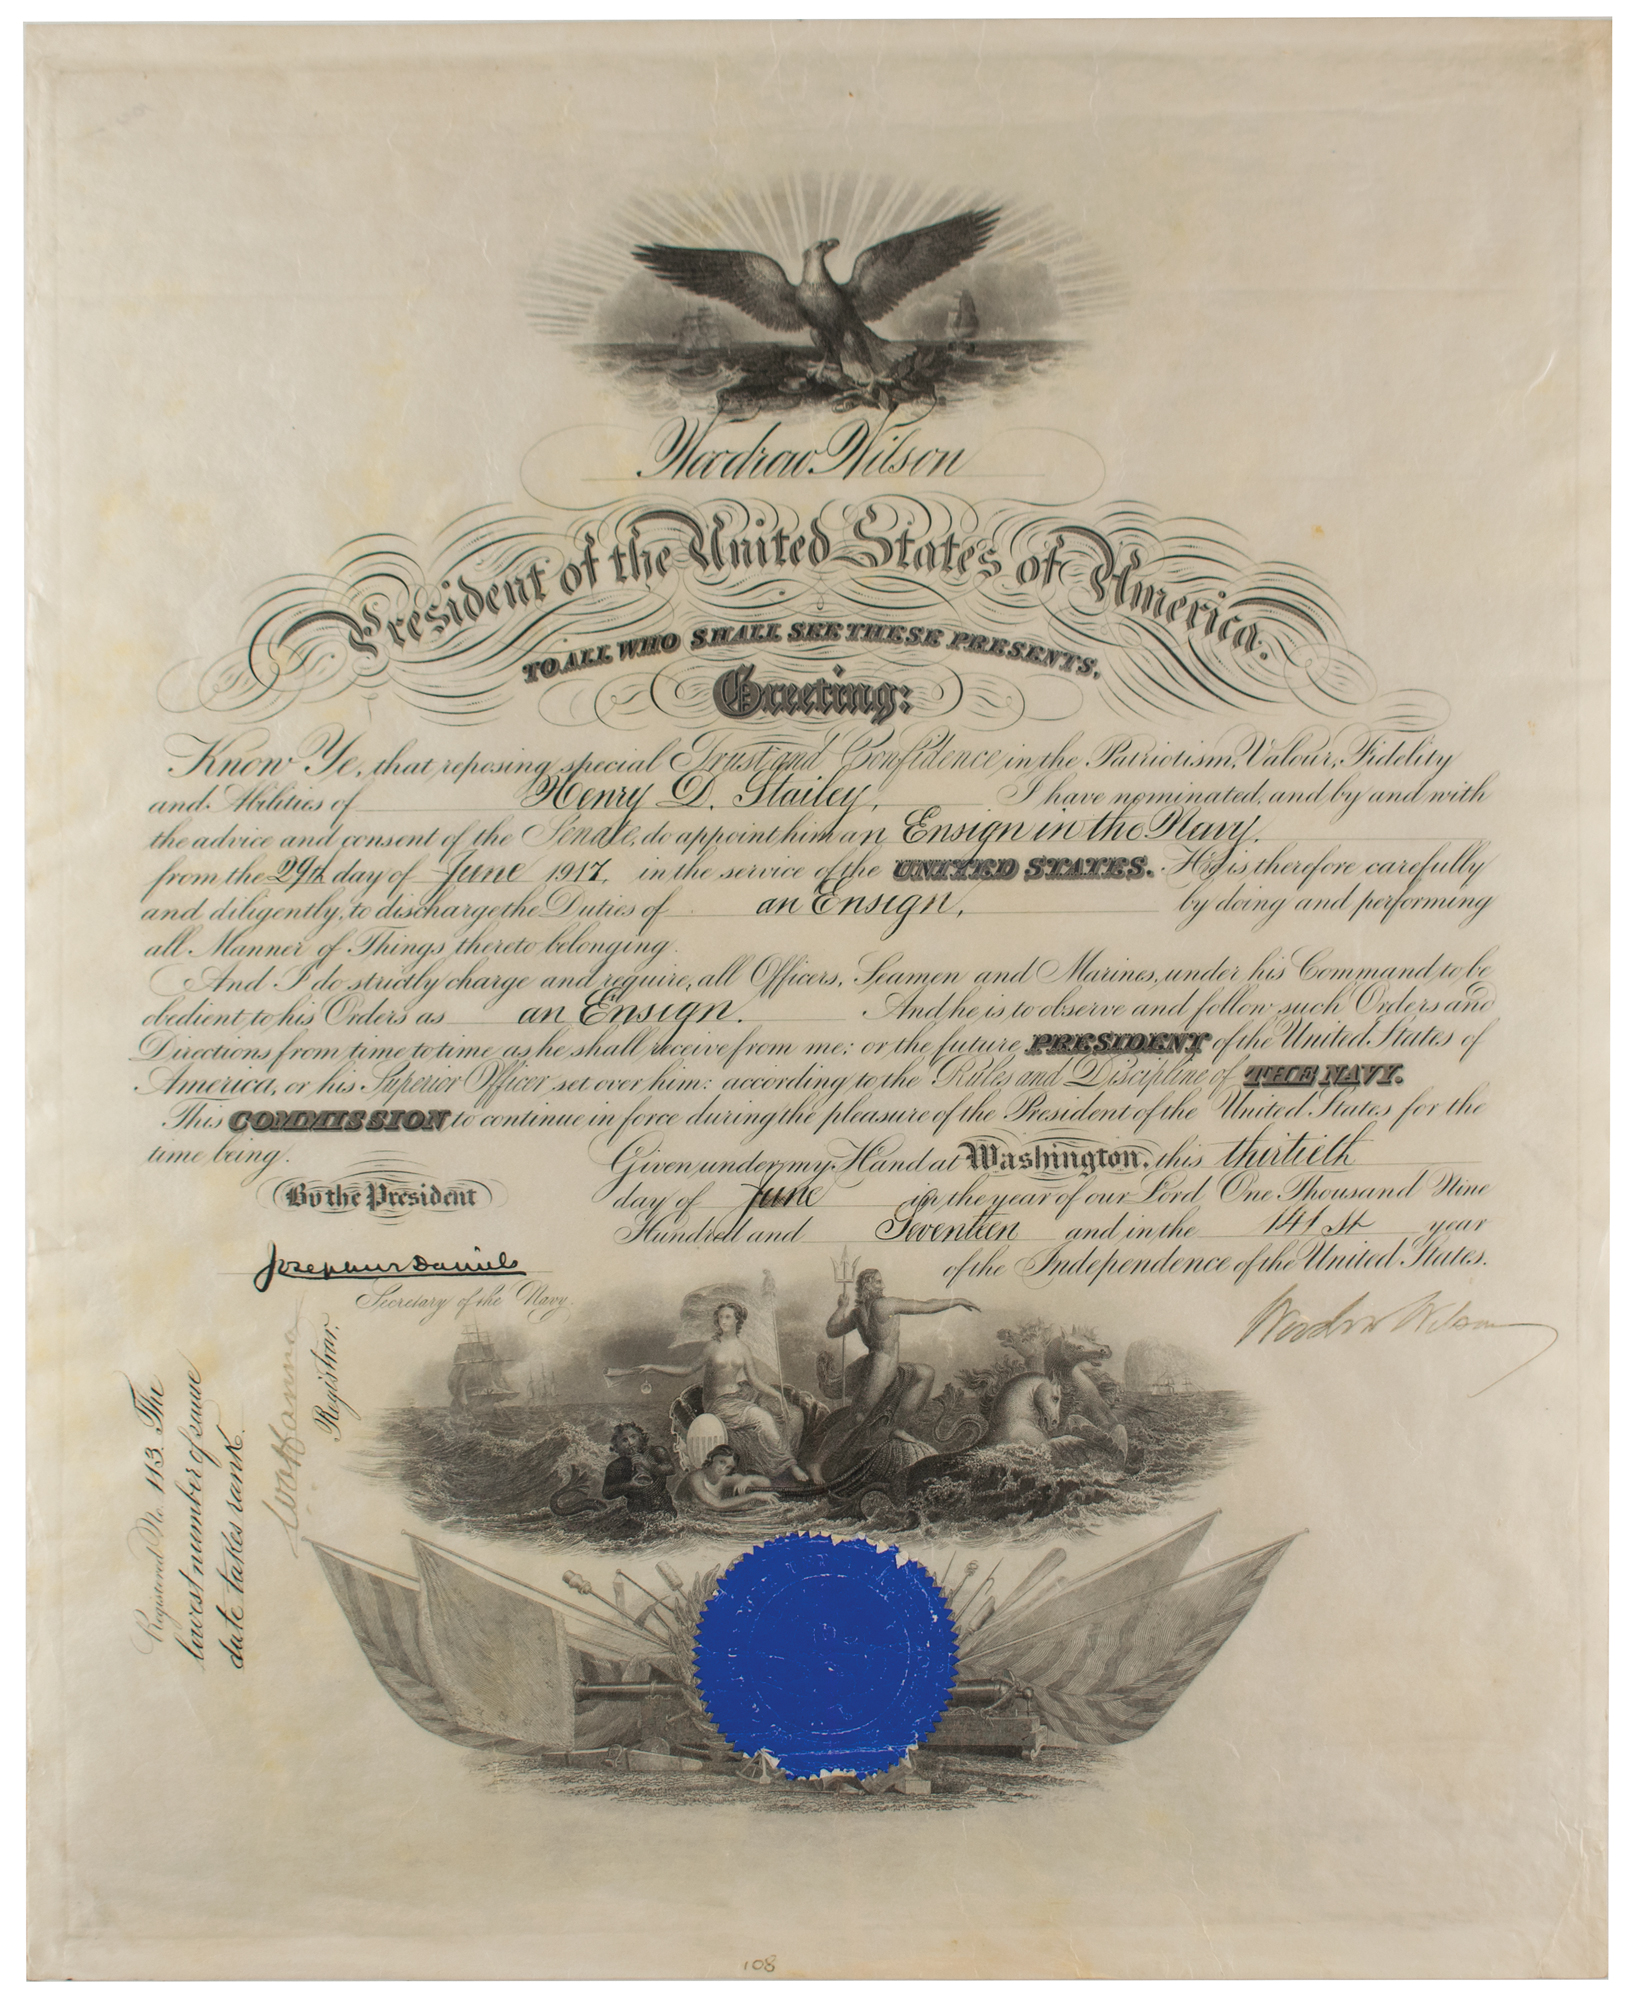 Woodrow Wilson
President of the United States of America.
TO ALL WHO SHALL SEE THESE PRESENTS,
Greeting:
Know Ye, that reposing special Trust and Confidence in the Patriotism, Valour, Fidelity
and Abilities of Henry D. Stailey, I have nominated, and, by and with
the advice and consent of the Senate, do appoint him an Ensign in the Navy
from the 29th day of June 1917, in the service of the UNITED STATES. He is therefore carefully
and diligently, to discharge the Duties of an Ensign, by doing and performing
all Manner of Things thereto belonging.
And I do strictly charge and require, all Officers, Seamen and Marines, under his Command to be
obedient to his Orders as an Ensign. And he is to observe and follow such Orders and
Directions from time to time as he shall receive from me; or the future PRESIDENT of the United States of
America, or his Superior Officer set over him: according to the Rules and Discipline of THE NAVY.
This COMMISSION to continue in force during the pleasure of the President of the United States for the
time being.
Given under my Hand at Washington, this thirtieth
day of June in the year of our Lord One Thousand Nine
Hundred and Seventeen and in the 141st year
of the Independence of the United States.
By the President
Josephus Daniels
Secretary of the Navy.
Woodrow Wilson
Registered No. 113. The
lowest number of same
date takes rank.
Registrar.
108